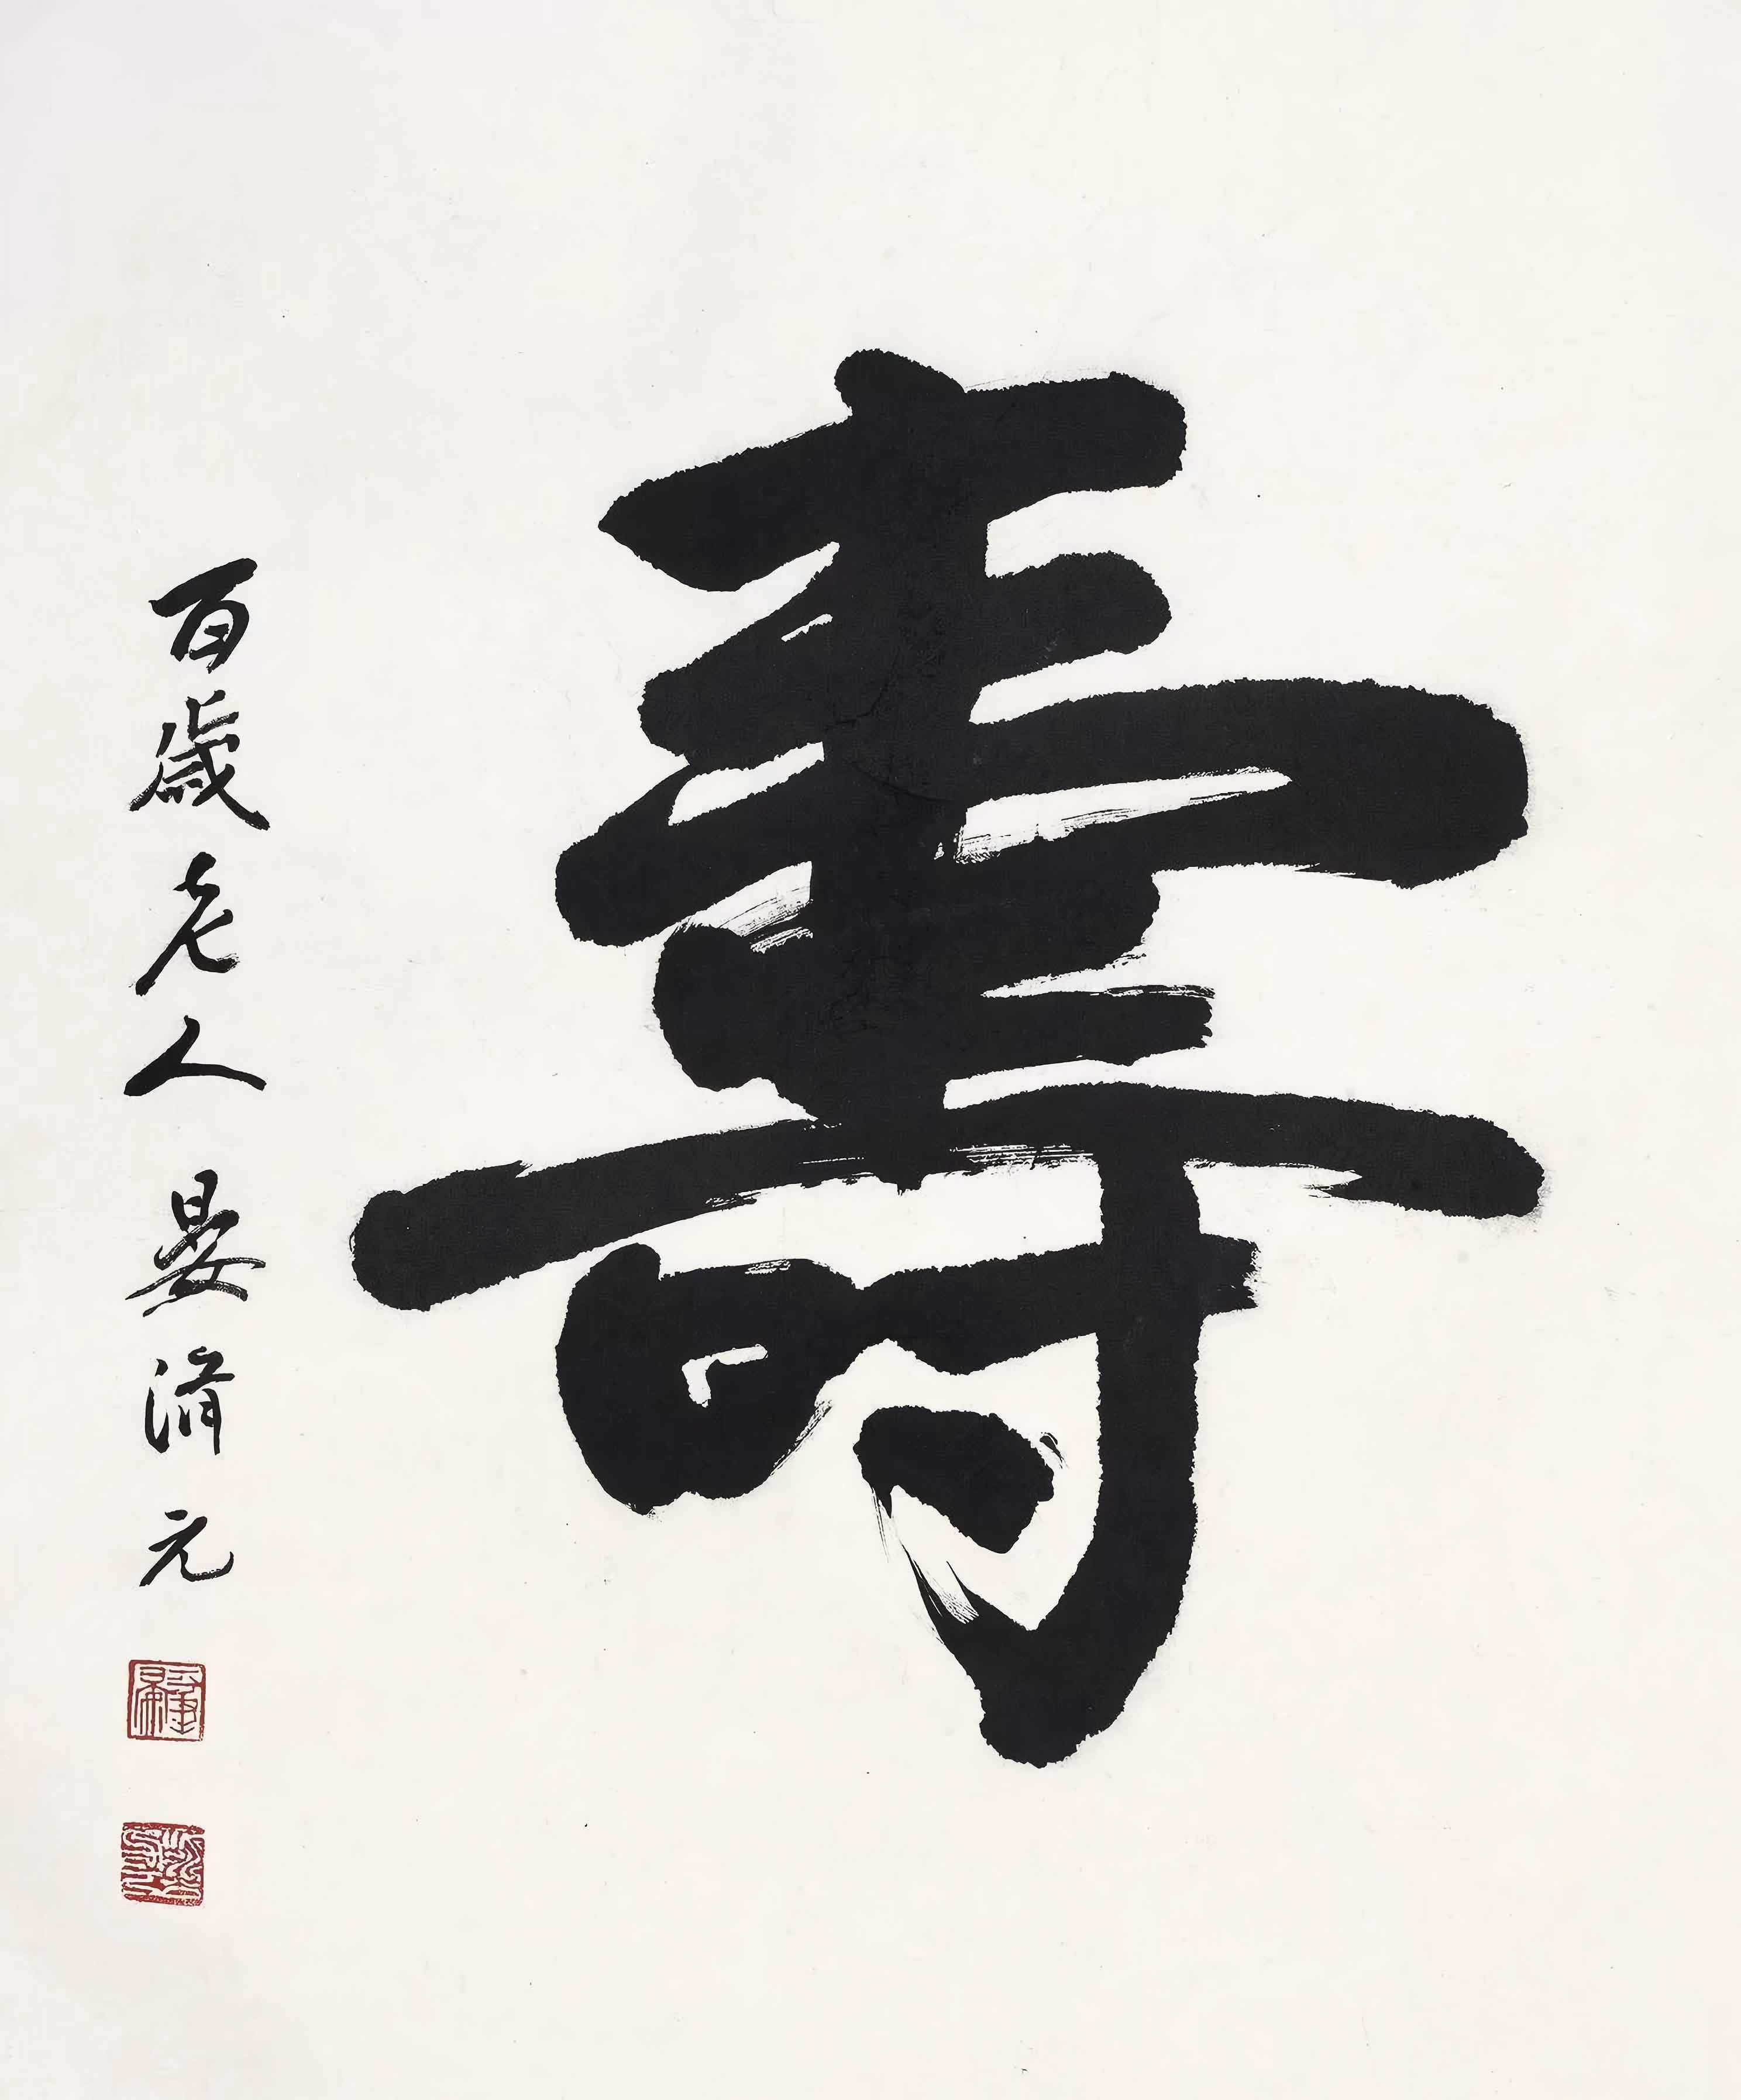 壽
百歲老人晏濟元